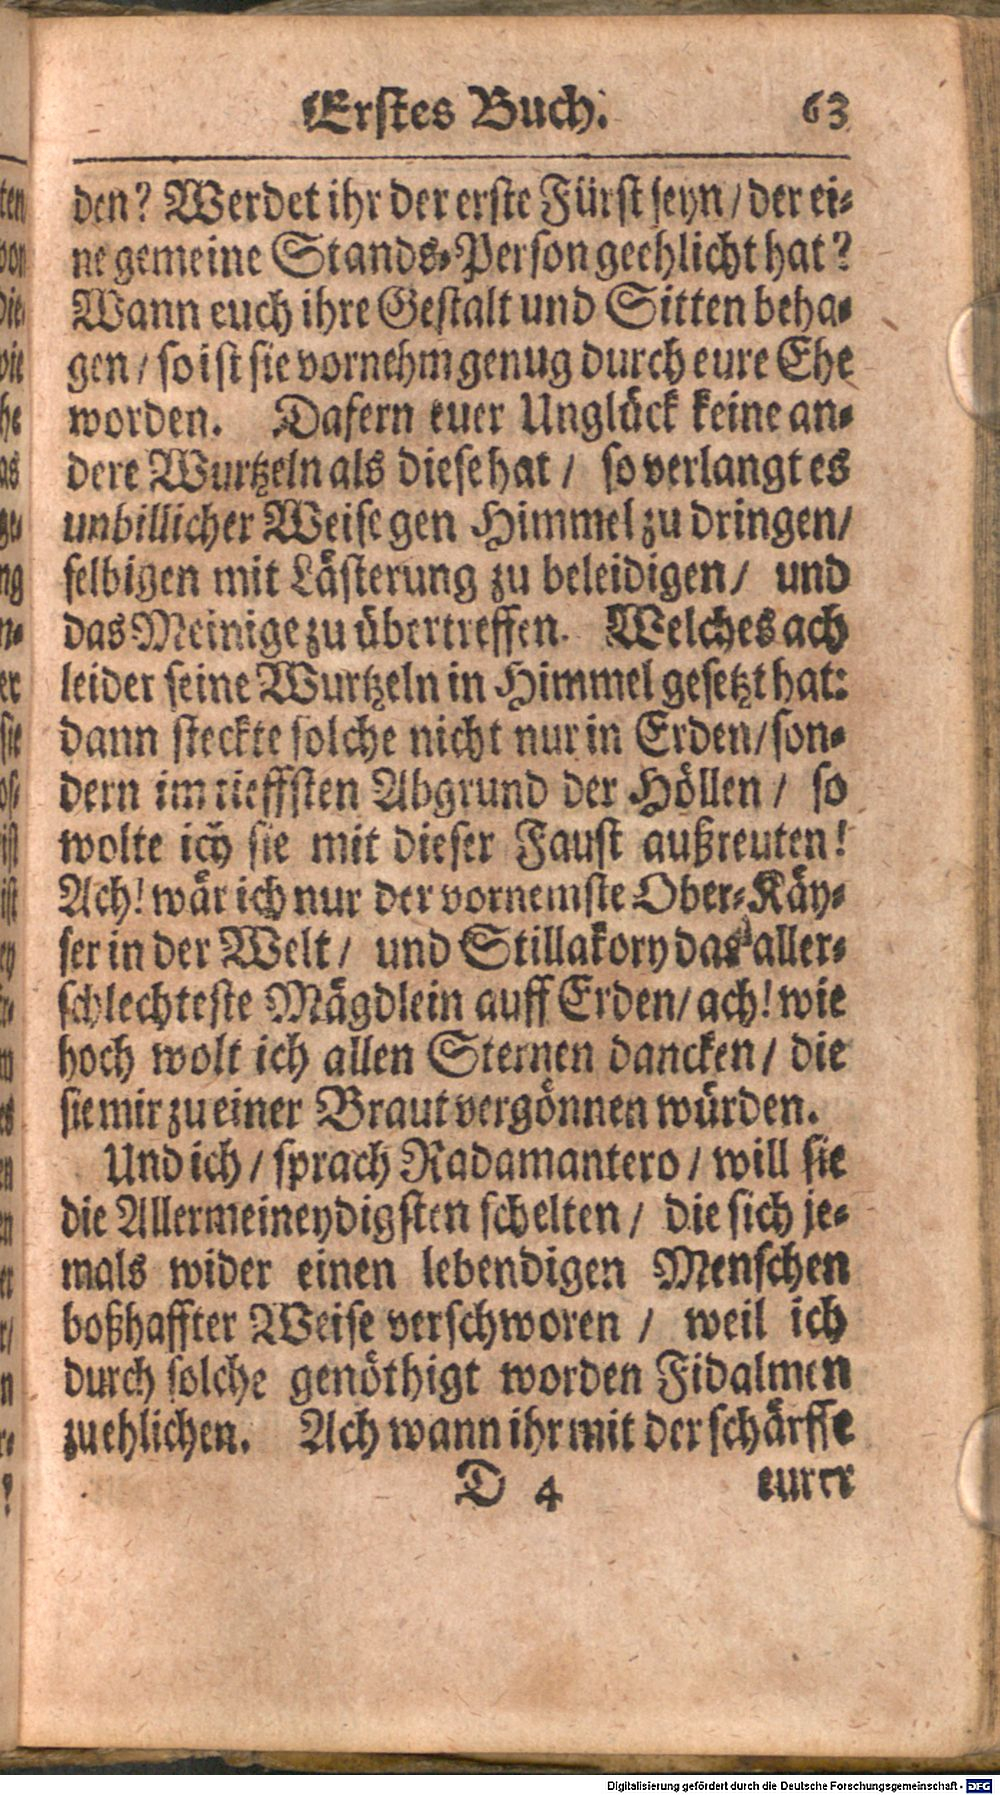 Erstes Buch. 63
den? Werdet ihr der erste Fürst seyn / der ei-
ne gemeine Stands-Person geehlicht hat?
Wann euch ihre Gestalt und Sitten beha-
gen / so ist sie vornehm genug durch eure Ehe
worden. Dafern euer Unglück keine an-
dere Wurtzeln als diese hat / so verlangt es
unbillicher Weise gen Himmel zu dringen /
selbigen mit Lästerung zu beleidigen / und
das Meinige zu übertreffen. Welches ach
leider seine Wurtzeln in Himmel gesetzt hat:
dann steckte solche nicht nur in Erden / son-
dern im tieffsten Abgrund der Höllen / so
wolte ich sie mit dieser Faust außreuten!
Ach! wär ich nur der vornemste Ober-Käy-
ser in der Welt / und Stillakory das aller-
schlechteste Mägdlein auff Erden / ach! wie
hoch wolt ich allen Sternen dancken / die
sie mir zu einer Braut vergönnen würden.
Und ich / sprach Radamantero / will sie
die Allermeineydigsten schelten / die sich je-
mals wider einen lebendigen Menschen
boßhaffter Weise verschworen / weil ich
durch solche genöthigt worden Fidalmen
zu ehlichen. Ach wann ihr mit der schärffe
D 4 eurer
Digitalisierung gefördert durch die Deutsche Forschungsgemeinschaft - DFG